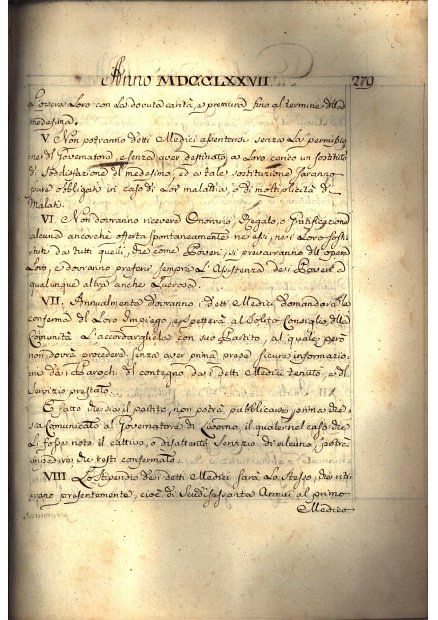 Anno MDCCLXXVII
279
L'opera Loro con la dovuta carità, e premura fino al termine della
medesima.
V. Non potranno detti Medici assentarsi senza la permissio-
ne del Governatore, e senza aver destinato a Loro conto un sostituto
di sodisfazione del medesimo, ed a tale sostituzione saranno
pure obbligati in caso di Lor malattia, o di moltiplicità di
Malati.
VI. Non dovranno ricevere Onorario, Regalo, o Gratificazione
alcuna ancorchè offerta spontaneamente nè essi, nè i Loro Sosti-
tuti da tutti quelli, che come Poveri, si prevarranno dell'opera
Loro, e dovranno preferir sempre L'Assistenza dei Poveri a
qualunque altra anche Lucrosa.
VII. Annualmente dovranno i detti Medici domandare la
conferma del Loro Impiego, e spetterà al Solito Consiglio della
Comunità L'accordargliela con suo Partito, al quale però
non dovrà procedere senza aver prima prese sicure informazio-
ni da i Parochi del contegno da i detti Medici tenuto, e del
servizio prestato.
E fatto che sia il partito, non potrà pubblicarsi, se
comunicato al Governatore di Livorno, il quale nel caso che
Le fosse noto il cattivo, o disattento Servizio di alcuno, potrà
impedire che resti confermato.
VIII Lo stipendio dei detti Medici sarà Lo stesso, che riti-
rano presentemente, cioè di Scudi sessanta Annui al primo
Medico